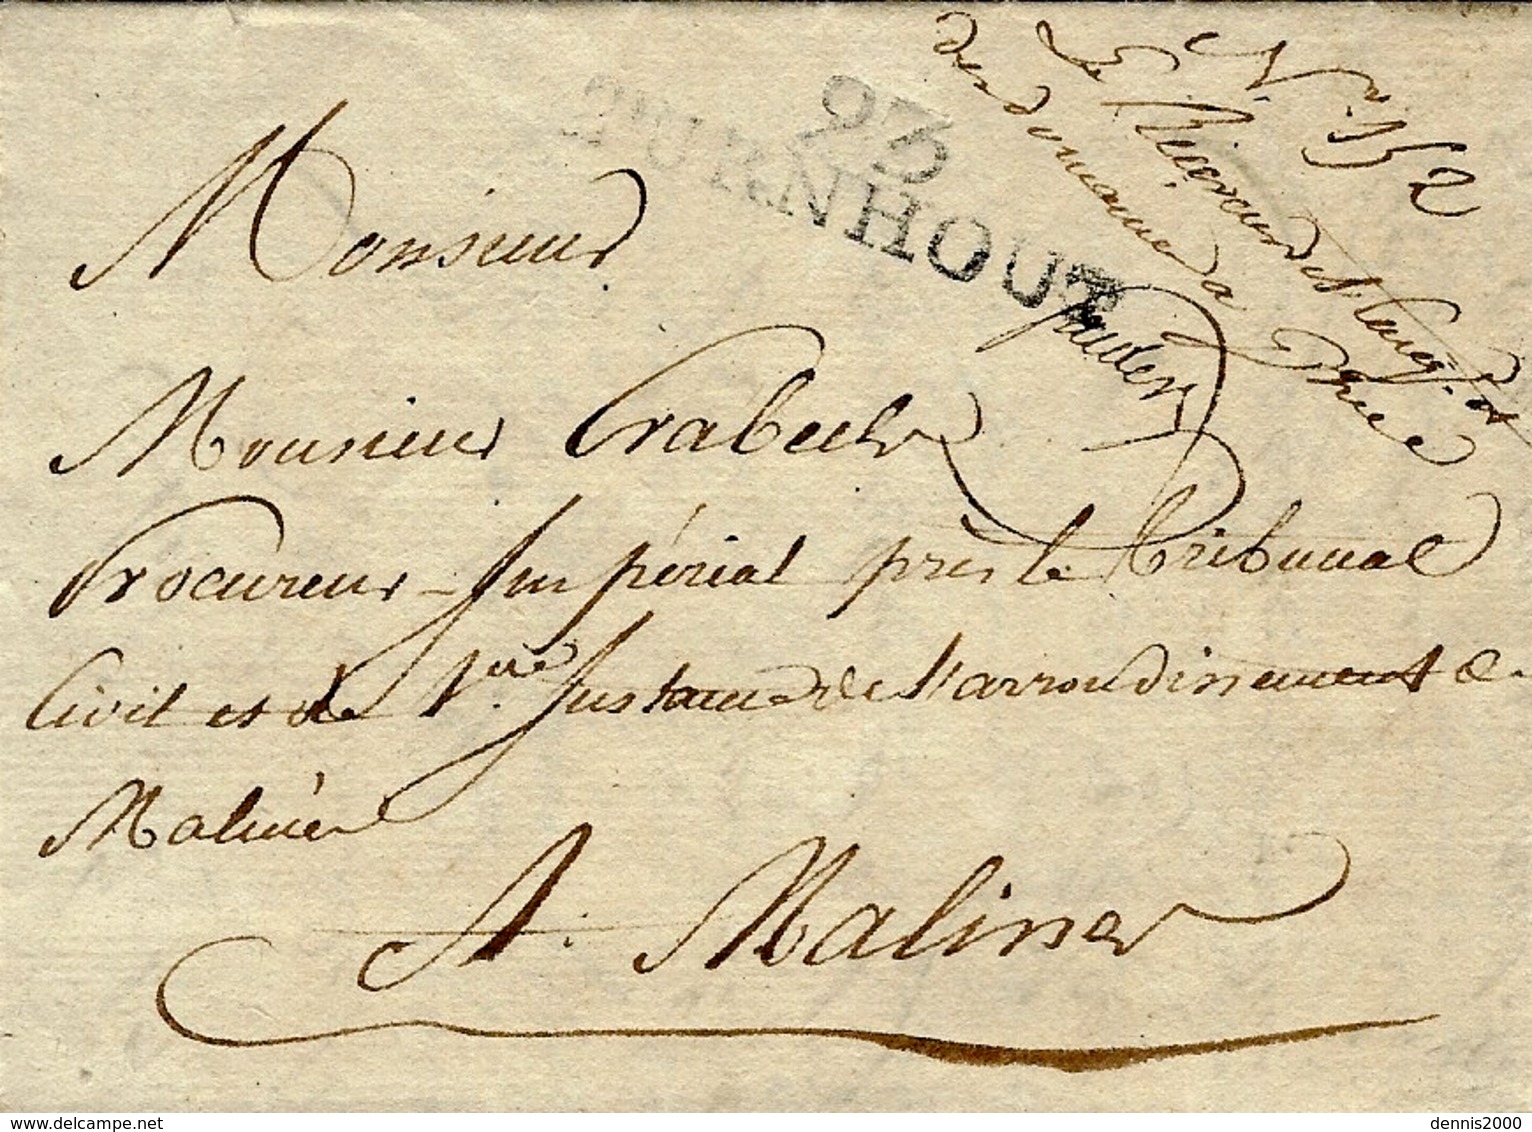 N.° 152
Le Receveur de l'enreg. et
des domaines à
93
TURNHOUT
Monsieur
Monsieur Crabeels
Procureur Impérial près le Tribunal
Civil et de 1.ere Instance de l'arrondissement de
Malines
A. Malines
dennis2000